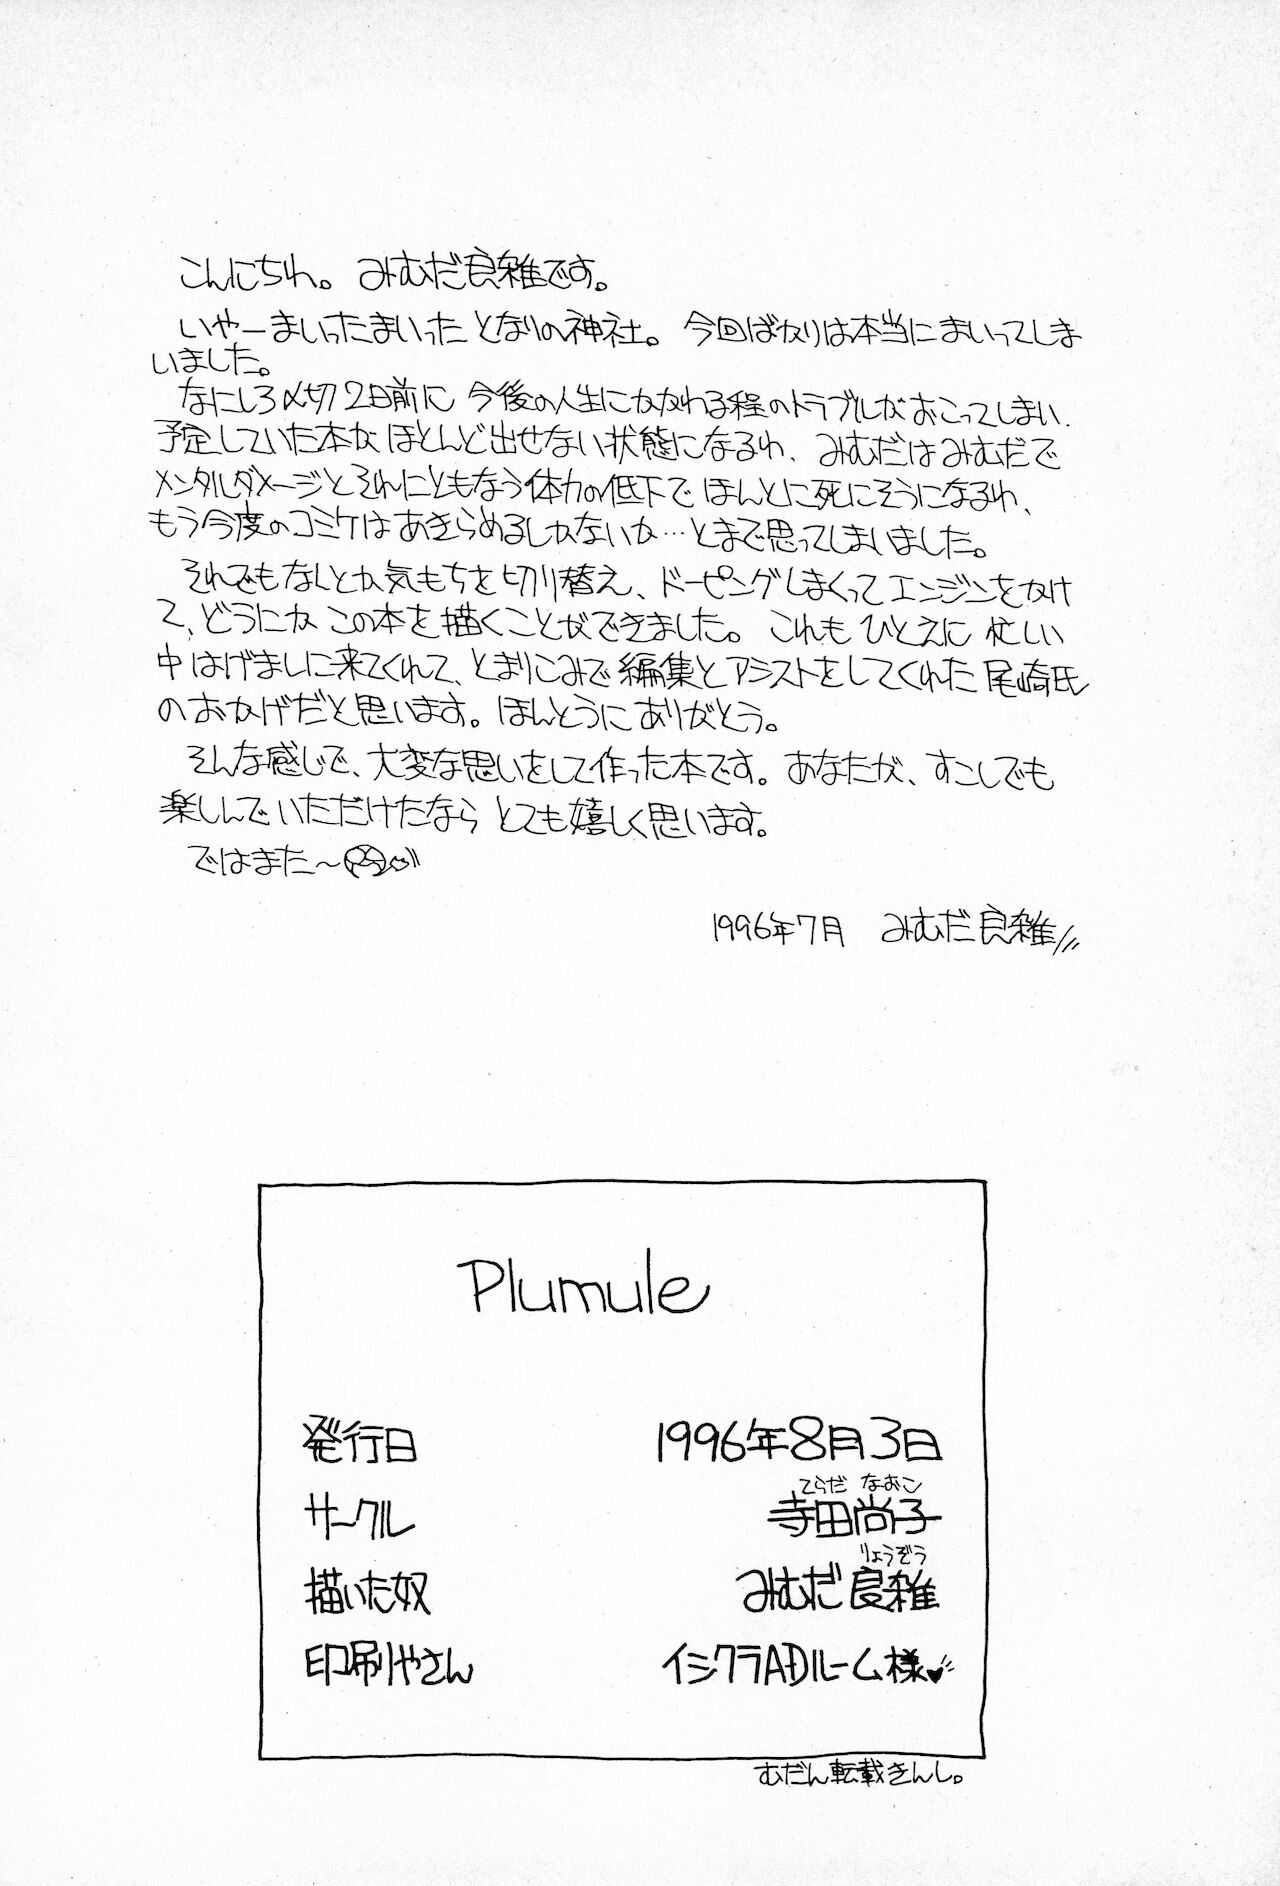 こんにちわ。 みむだ良雑です。
いやーまいったまいった となりの神社。 今回ばかりは本当にまいってしま
いました。
なにしろ〆切2日前に 今後の人生にかかわる程のトラブルがおこってしまい、
予定していた本が ほとんど出せない状態になるわ、 みむだはみむだで
メンタルダメージとそれにともなう体力の低下で ほんとに死にそうになるわ、
もう今度のコミケはあきらめるしかないか…とまで思ってしまいました。
それでもなんとか気もちを切り替え、ドーピングしまくってエンジンをかけ
て、どうにか この本を描くことができました。 これも ひとえに 忙しい
中 はげましに来てくれて、とまりこみで 編集とアシストをしてくれた 尾崎氏
のおかげだと思います。ほんとうにありがとう。
そんな感じで、大変な思いをして作った本です。あなたが、すこしでも
楽しんでいただけたなら とても嬉しく思います。
ではまた～
1996年7月 みむだ良雑
Plumule
発行日 1996年8月3日
てらだ なおこ
サークル 寺田尚子
りょうぞう
描いた奴 みむだ良雑
印刷やさん イシクラADルーム様
むだん転載きんし。